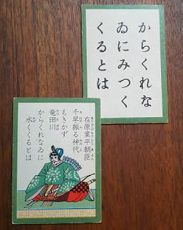 からくれな
ゐにみつく
くるとは
在原業平朝臣
千早振る神代
もきかず
竜田川
からくれなゐに
水くくるとは